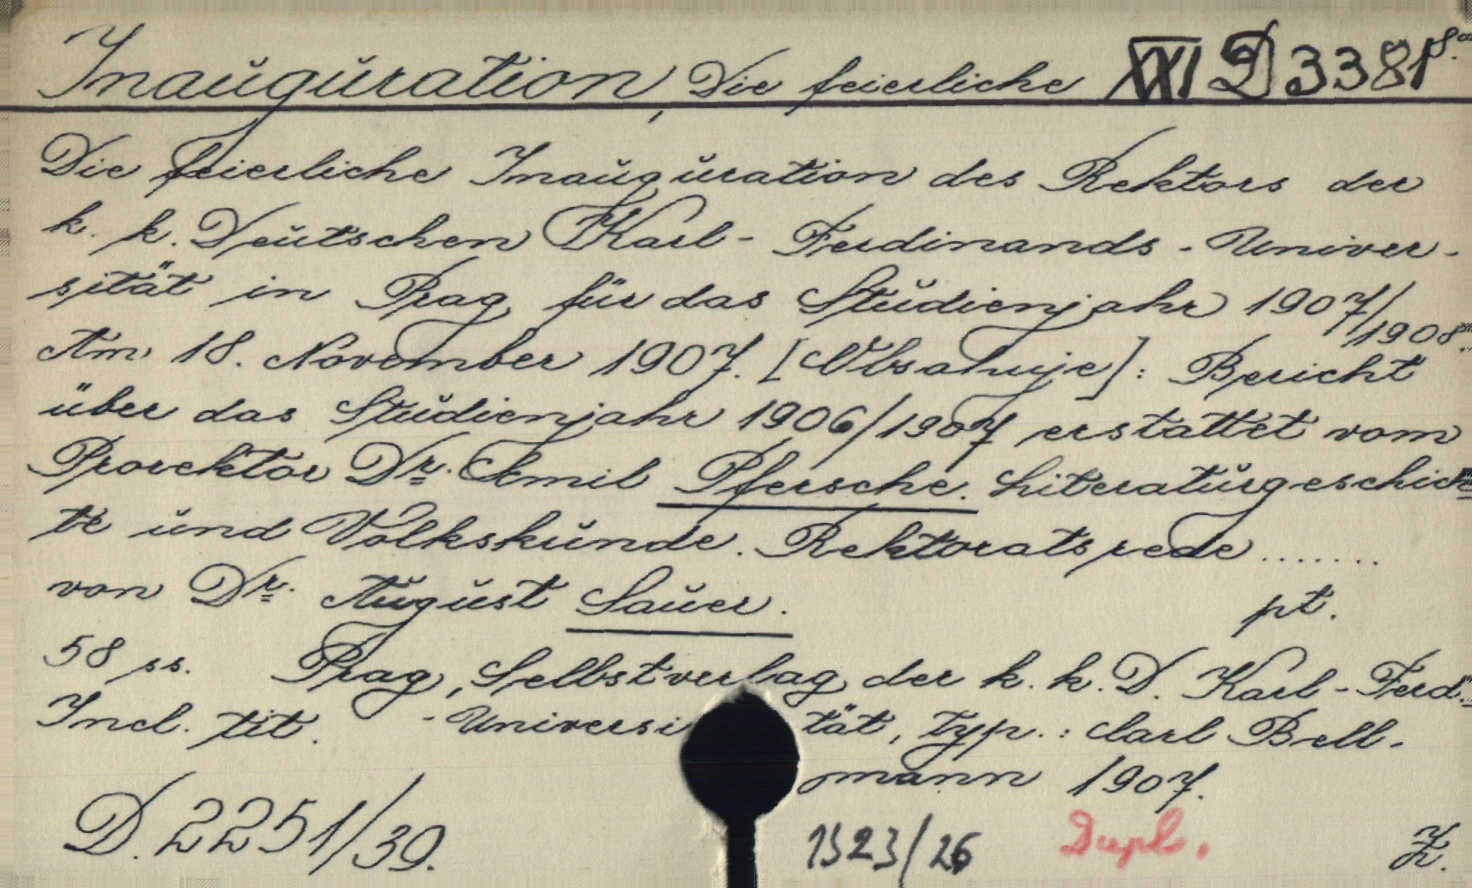 Inauguration, Die feierliche XXI D 3381
Die feierliche Inauguration des Rektors der
k. k. Deutschen Karl-Ferdinands-Univer-
sität in Prag für das Studienjahr 1907/1908.
Am 18. November 1907. [Obsahuje]: Bericht
über das Studienjahr 1906/1907 erstattet vom
Prorektor Dr. Emil Pfersche. Literaturgeschich-
te und Volkskunde. Rektoratsrede.......
von Dr. August Sauer. pt.
58 ss. Prag, Selbstverlag der k. k. D. Karl-Ferd.-
Incl. tit. -Universität, typ.: Carl Bell-
mann 1907.
D. 2251/39. 1323/26 Dupl. Ž.